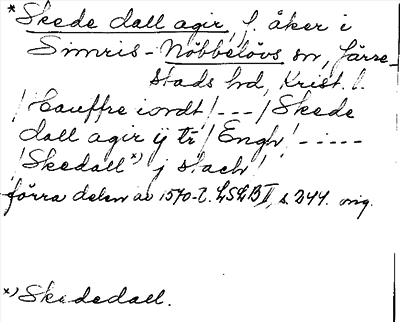 *Skede dall agir, f. åker i
Simris-Nöbbelövs sn, Järre-
stads hd, Krist. l.
/Hauffre iordt/---/Skede
dall agir ij tr/Engh/-----
/Skedall x) j stach/
förra delen av 1570-t. LSLB II, s. 244. orig.
x) Skededall.